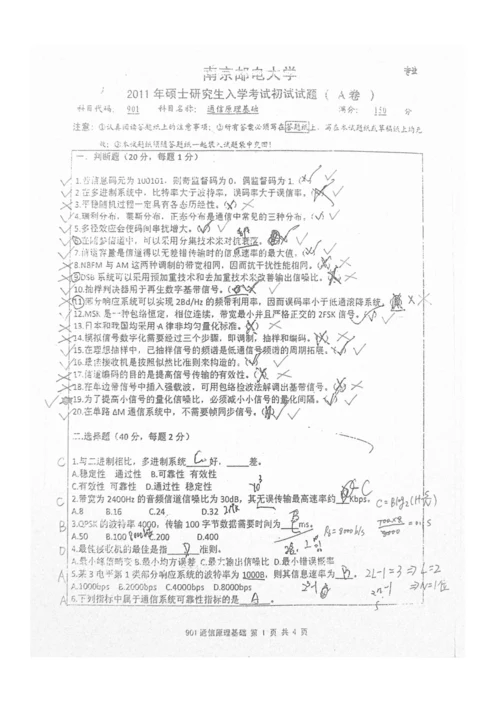 南京邮电大学
2011 年硕士研究生入学考试初试试题( A 卷 )
科目代码: 901 科目名称: 通信原理基础 满分: 150 分
注意: ①认真阅读答题纸上的注意事项; ②所有答案必须写在答题纸上, 写在本试题纸或草稿纸上均无
效; ③本试题纸须随答题纸一起装入试题袋中交回!
一. 判断题(20 分, 每题 1 分)
1.若信息码元为 100101, 则奇监督码为 0, 偶监督码为 1. ( )
2.在多进制系统中, 比特率大于波特率, 误码率大于误信率。
3.平稳随机过程一定具有各态历经性。( )
4.瑞利分布、莱斯分布、正态分布是通信中常见的三种分布。( )
5.多径效应会使码间串扰增大。( )
可以采用分集技术来对抗衰落。
7.信道容量是信道得以无差错传输时的信息速率的最大值。
8.NBFM 与 AM 这两种调制的带宽相同, 因而抗干扰性能相同。
9.DSB 系统可以采用预加重技术和去加重技术来改善输出信噪比。
10.抽样判决器用于再生数字基带信号。
11.部分响应系统可以实现 2Bd/Hz 的频带利用率, 因而误码率小于低通滚降系统。
12.MSK 是一种包络恒定、相位连续, 带宽最小并且严格正交的 2FSK 信号。
13.日本和我国均采用 A 律非均匀量化标准。
14.模拟信号数字化需要经过三个步骤, 即调制、抽样和编码。
15.在理想抽样中, 已抽样信号的频谱是低通信号频谱的周期拓展。
16.最佳接收机是按照似然比准则来构造的。
17.信道编码的目的是提高信号传输的有效性。
18.在单边带信号中插入强载波, 可用包络检波法解调出基带信号。
19.为了提高小信号的量化信噪比, 必须减小小信号的量化间隔。
20.在单路 ΔM 通信系统中, 不需要帧同步信号。
二.选择题(40 分, 每题 2 分)
C 1.与二进制相比, 多进制系统 C 好, 差。
A.稳定性 通过性 B.可靠性 有效性
C.有效性 可靠性 D.通过性 稳定性
2.带宽为 2400Hz 的音频信道信噪比为 30dB, 其无误传输最高速率约 Kbps. C
A.8 B.16 C.24 D.32
B 3.QPSK 的波特率 4000, 传输 100 字节数据需要时间为 ms。
A.50 B.100 C.200 D.400
D 4.最佳接收机的最佳是指 D 准则。
A.最小峰值畸变 B.最小均方误差 C.最大输出信噪比 D.最小错误概率
A 5.某 3 电平第 1 类部分响应系统的波特率为 1000B, 则其信息速率为 2L-1=3 ⇒ L=2
A.1000bps B.2000bps C.4000bps D.8000bps
A 6.下列指标中属于通信系统可靠性指标的是 A 。
901 通信原理基础 第 1 页 共 4 页